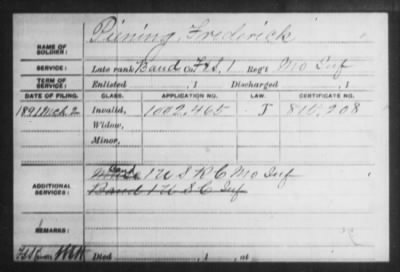 Piening, Frederick
NAME OF SOLDIER:
SERVICE: Late rank Band Co. F&S, 1 Reg't Mo Inf
TERM OF SERVICE: Enlisted , 1 Discharged , 1
DATE OF FILING. CLASS. APPLICATION NO. LAW. CERTIFICATE NO.
1891 Mch 2 Invalid, 1002.465 J 815.208
Widow,
Minor,
ADDITIONAL SERVICES: Band 1 U S R C Mo Inf
Band 1 U S C Inf
REMARKS:
Died , 1 , at